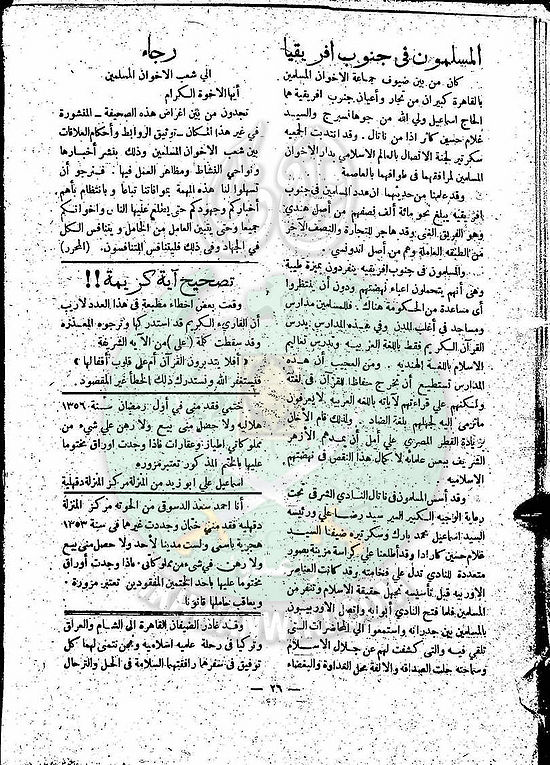 المسلمون فى جنوب افريقيا
كان من بين ضيوف جماعة الاخوان المسلمين
بالقاهرة كبيران من تجار وأعيان جنوب افريقية هما
الحاج اسماعيل ولي الله من جوهانسبرج والسيد
غلام حسين كاترادا من ناتال . وقد انتدبت الجمعية
سكرتير لجنة الاتصال بالعالم الاسلامي بدار الاخوان
المسلمين لمرافقتهما فى طوافهما بالعاصمة
وقد علمنا من حديثهما ان عدد المسلمين فى جنوب
افريقيه يبلغ نحو مائة ألف نصفهم من أصل هندي
وهو الفريق الغنى وقد هاجر للتجارة والنصف الآخر
من الطبقه العاملة وهم من أصل اندونسي .
والمسلمون فى جنوب افريقيه ينفردون بميزة طيبة
وهى أنهم يتحملون اعباء نهضتهم ودون أن ينتظروا
أى مساعدة من الحكومة هناك . فللمسلمين مدارس
ومساجد فى أغلب المدن وفى هذه المدارس يدرس
القرآن الكريم فقط باللغة العربية ويدرس تعاليم
الاسلام باللغة الهندية . ومن العجيب أن هذه
المدارس تستطيع أن تخرج حفاظا للقرآن فى لغته
ولكنهم على قراءتهم لآياته باللغه العربية لا يعرفون
ماترمى إليه لجهلهم بلغة الضاد . ولذلك قام الأخان
بزيادة القطر المصري على أمل أن يمدهم الأزهر
الشريف ببعض علمائه لاكمال هذا النقص فى نهضتهم
الاسلامية
وقد أسس المسلمون فى ناتال النادى الشرقى تحت
رعاية الوجيه الكبير السير سيد رضا على ورئيسه
السيد اسماعيل محمد بارك وسكرتيره ضيفنا السيد
غلام حسين كارادا وقد أطلعنا على كراسة مزينة بصور
متعددة للنادى تدل على فخامته وقد كانت العناصر
الاوربيه قبل تأسيسه تجهل حقيقة الاسلام وتنفر من
المسلمين فلما فتح النادي أبوابه واتصل الاوربيون
بالمسلمين بين جدرانه واستمعوا الى المحاضرات التى
تلقى فيه والتى كشفت لهم عن جلال الاسلام
وسماحته حلت الصداقه والالفة محل العداوة والبغضاء
رجاء
الي شعب الاخوان المسلمين
أيها الاخوة الكرام
تجدون من بين اغراض هذه الصحيفة ــ المنشورة
فى غير هذا المكان ــ توثيق الروابط وأحكام العلاقات
بين شعب الاخوان المسلمين وذلك بنشر أخبارها
ونواحي النشاط ومظاهر العمل فيها . فنرجو أن
تسهلوا لنا هذه المهمة بموافاتنا تباعا وبانتظام بأهم
أخباركم وجهودكم حتى يطلع عليها الناس واخوانكم
جميعا وحتى يتبين العامل من الخامل ويتنافس الكل
في الجهاد وفى ذلك فليتنافس المتنافسون. (المحرر)
تصحيح آية كريمة !!
وقعت بعض اخطاء مطبعية فى هذا العدد لاريب
أن القارىء الكريم قد استدركها ونرجوه المعذرة
وقد سقطت كلمة (على) من الآيه الشريفة
« أفلا يتدبرون القرآن أم على قلوب أقفالها »
فنستغفر الله ونستدرك ذلك الخطأ غير المقصود .
ختمي فقد منى فى أول رمضان سنة ١٣٥٦
هلاليه ولا حصل منى بيع ولا رهن علي شيء من
مملوكاتي اطيان وعقارات فاذا وجدت أوراق مختوما
عليها بالختم المذكور تعتبر مزوره
اسماعيل علي ابو زيد من المنزلة مركز المنزلة دقهلية
أنا احمد سعد الدسوقى من الحوته مركز المنزلة
دقهليه فقد منى ختمان وجددت غيرها فى سنة ١٣٥٣
هجريه باسمى ولست مدينا لأحد ولا حصل منى بيع
ولا رهن فى شيء من مملوكاتى فاذا وجدت أوراق
مختوما عليها بأحد الختمين المفقودين تعتبر مزورة .
ويعاقب حاملها قانونا
وقد غادر الضيفان القاهرة الى الشام والعراق
وتركيا فى رحلة علميه اسلاميه ونحن نتمنى لهما كل
توفيق فى سفرهما رافقتهما السلامة فى الحل والترحال
— ٢٦ —